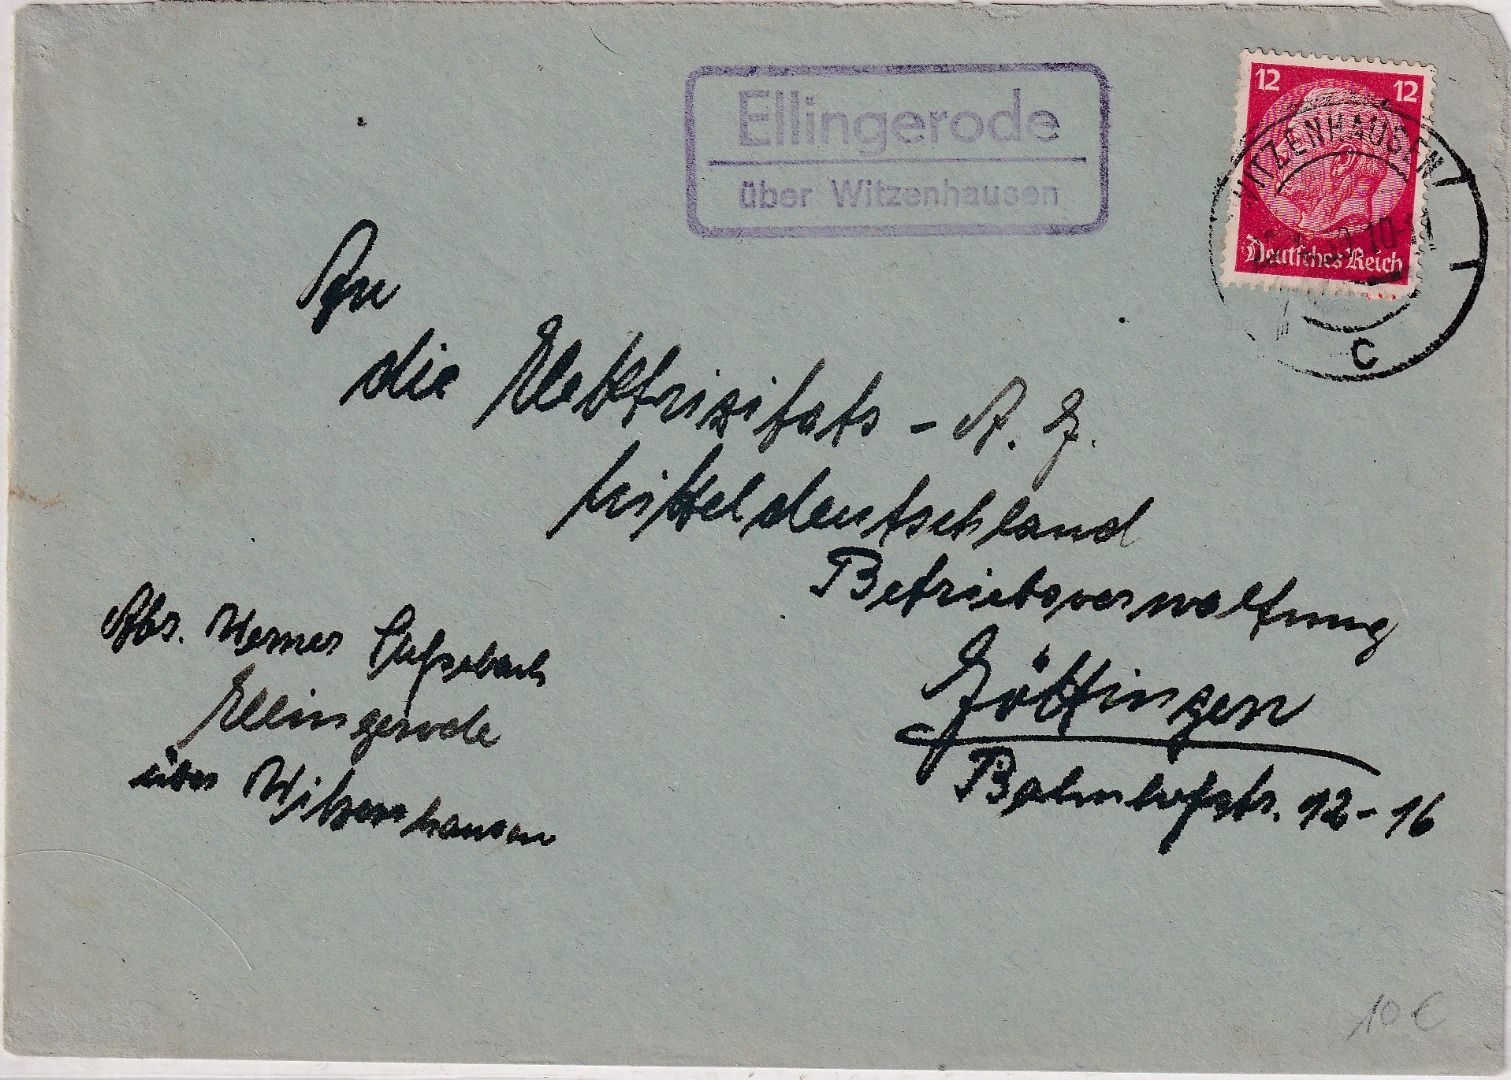 Ellingerode
über Witzenhausen
12 12
Deutsches Reich
WITZENHAUSEN
c
An
die Elektrizitats - A. G.
Mitteldeutschland
Betriebsverwaltung
Göttingen
Bahnhofstr. 12-16
Abs. Werner
Ellingerode
über Witzenhausen
10 €